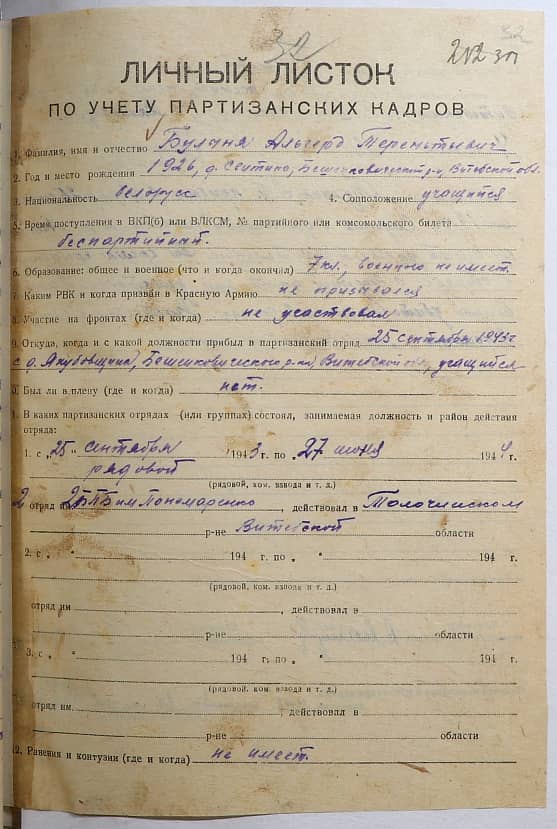 32
32
202 зп
ЛИЧНЫЙ ЛИСТОК
ПО УЧЕТУ ПАРТИЗАНСКИХ КАДРОВ
1. Фамилия, имя и отчество Булыня Альгерд Терентьевич
2. Год и место рождения 1926, д. Сентино, Бешенковический р-н, Витебской обл.
3. Национальность белорусс 4. Соцположение учащийся
5. Время поступления в ВКП(б) или ВЛКСМ, № партийного или комсомольского билета
беспартийный.
6. Образование: общее и военное (что и когда окончил) 7 кл., военного не имеет.
7. Каким РВК и когда призван в Красную Армию не призывался
8. Участие на фронтах (где и когда) не участвовал
9. Откуда, когда и с какой должности прибыл в партизанский отряд 25 сентября 1943 г.
с д. Якубовщина, Бешенковического р-на, Витебской обл., учащийся
0. Был ли в плену (где и когда) нет.
1. В каких партизанских отрядах (или группах) состоял, занимаемая должность и район действия
отряда:
1. с „25" сентября 1943 г. по „27 июня 1944 г.
рядовой
(рядовой, ком. взвода и т. д.)
2 отряд им. 2БПБ им. Пономаренко, действовал в Толочинском
р-не Витебской области
2. с „ " 194 г. по „ " 194 г.
(рядовой, ком. взвода и т. д.)
отряд им , действовал в
р-не области
3. с „ " 194 г. по „ " 194 г.
(рядовой, ком. взвода и т. д.)
отряд им. , действовал в
р-не области
12. Ранения и контузии (где и когда) не имеет.